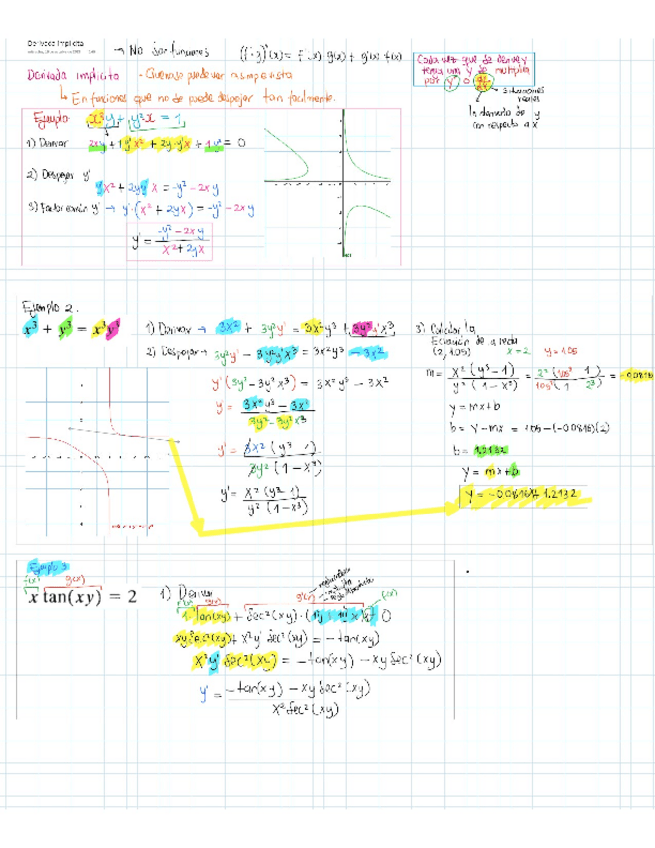 Derivada Implícita
→ No son funciones
(f·g)'(x) = f'(x)·g(x) + g'(x)·f(x)
Cada vez que se derive y
tenga una y se multiplica
por y' o dy/dx
Derivada implícita
- Que no se puede ver a simple vista
↳ En funciones que no se puede despejar tan facilmente.
la derivada de y
con respecto a x
Ejemplo x²y + y²x = 1
1) Derivar 2xy + 1y'x² + 2y·y'x + 1y² = 0
2) Despejar y'
y'x² + 2yy'x = -y² - 2xy
3) Factor común y' → y'·(x² + 2yx) = -y² - 2xy
y' = (-y² - 2xy) / (x² + 2yx)
Ejemplo 2.
x³ + y³ = x³y³
1) Derivar → 3x² + 3y²y' = 3x²y³ + 3y²y'x³
2) Despejar → 3y²y' - 3y²y'x³ = 3x²y³ - 3x²
y'(3y² - 3y²x³) = 3x²y³ - 3x²
y' = (3x²y³ - 3x²) / (3y² - 3y²x³)
y' = 3x²(y³ 1) / 3y²(1 - x³)
y' = x²(y³ 1) / y²(1 - x³)
3) Calcular la
Ecuación de la recta
(2, 1.05) x = 2 y = 1.05
m = x²(y³ - 1) / y²(1 - x³) = 2²(1.05³ 1) / 1.05²(1 2³) = -0.0816
y = mx + b
b = y - mx = 1.05 - (-0.0816)(2)
b = 1.2132
y = mx + b
y = -0.0816x + 1.2132
Ejemplo 3
f(x) g(x)
x tan(xy) = 2
1) Derivar
f'(x) g(x) g'(x) f(x)
1·tan(xy) + sec²(xy)·(1y + 1y'x)x = 0
xy sec²(xy) + x²y' sec²(xy) = -tan(xy)
x²y' sec²(xy) = -tan(xy) - xy sec²(xy)
y' = (-tan(xy) - xy sec²(xy)) / (x² sec²(xy))